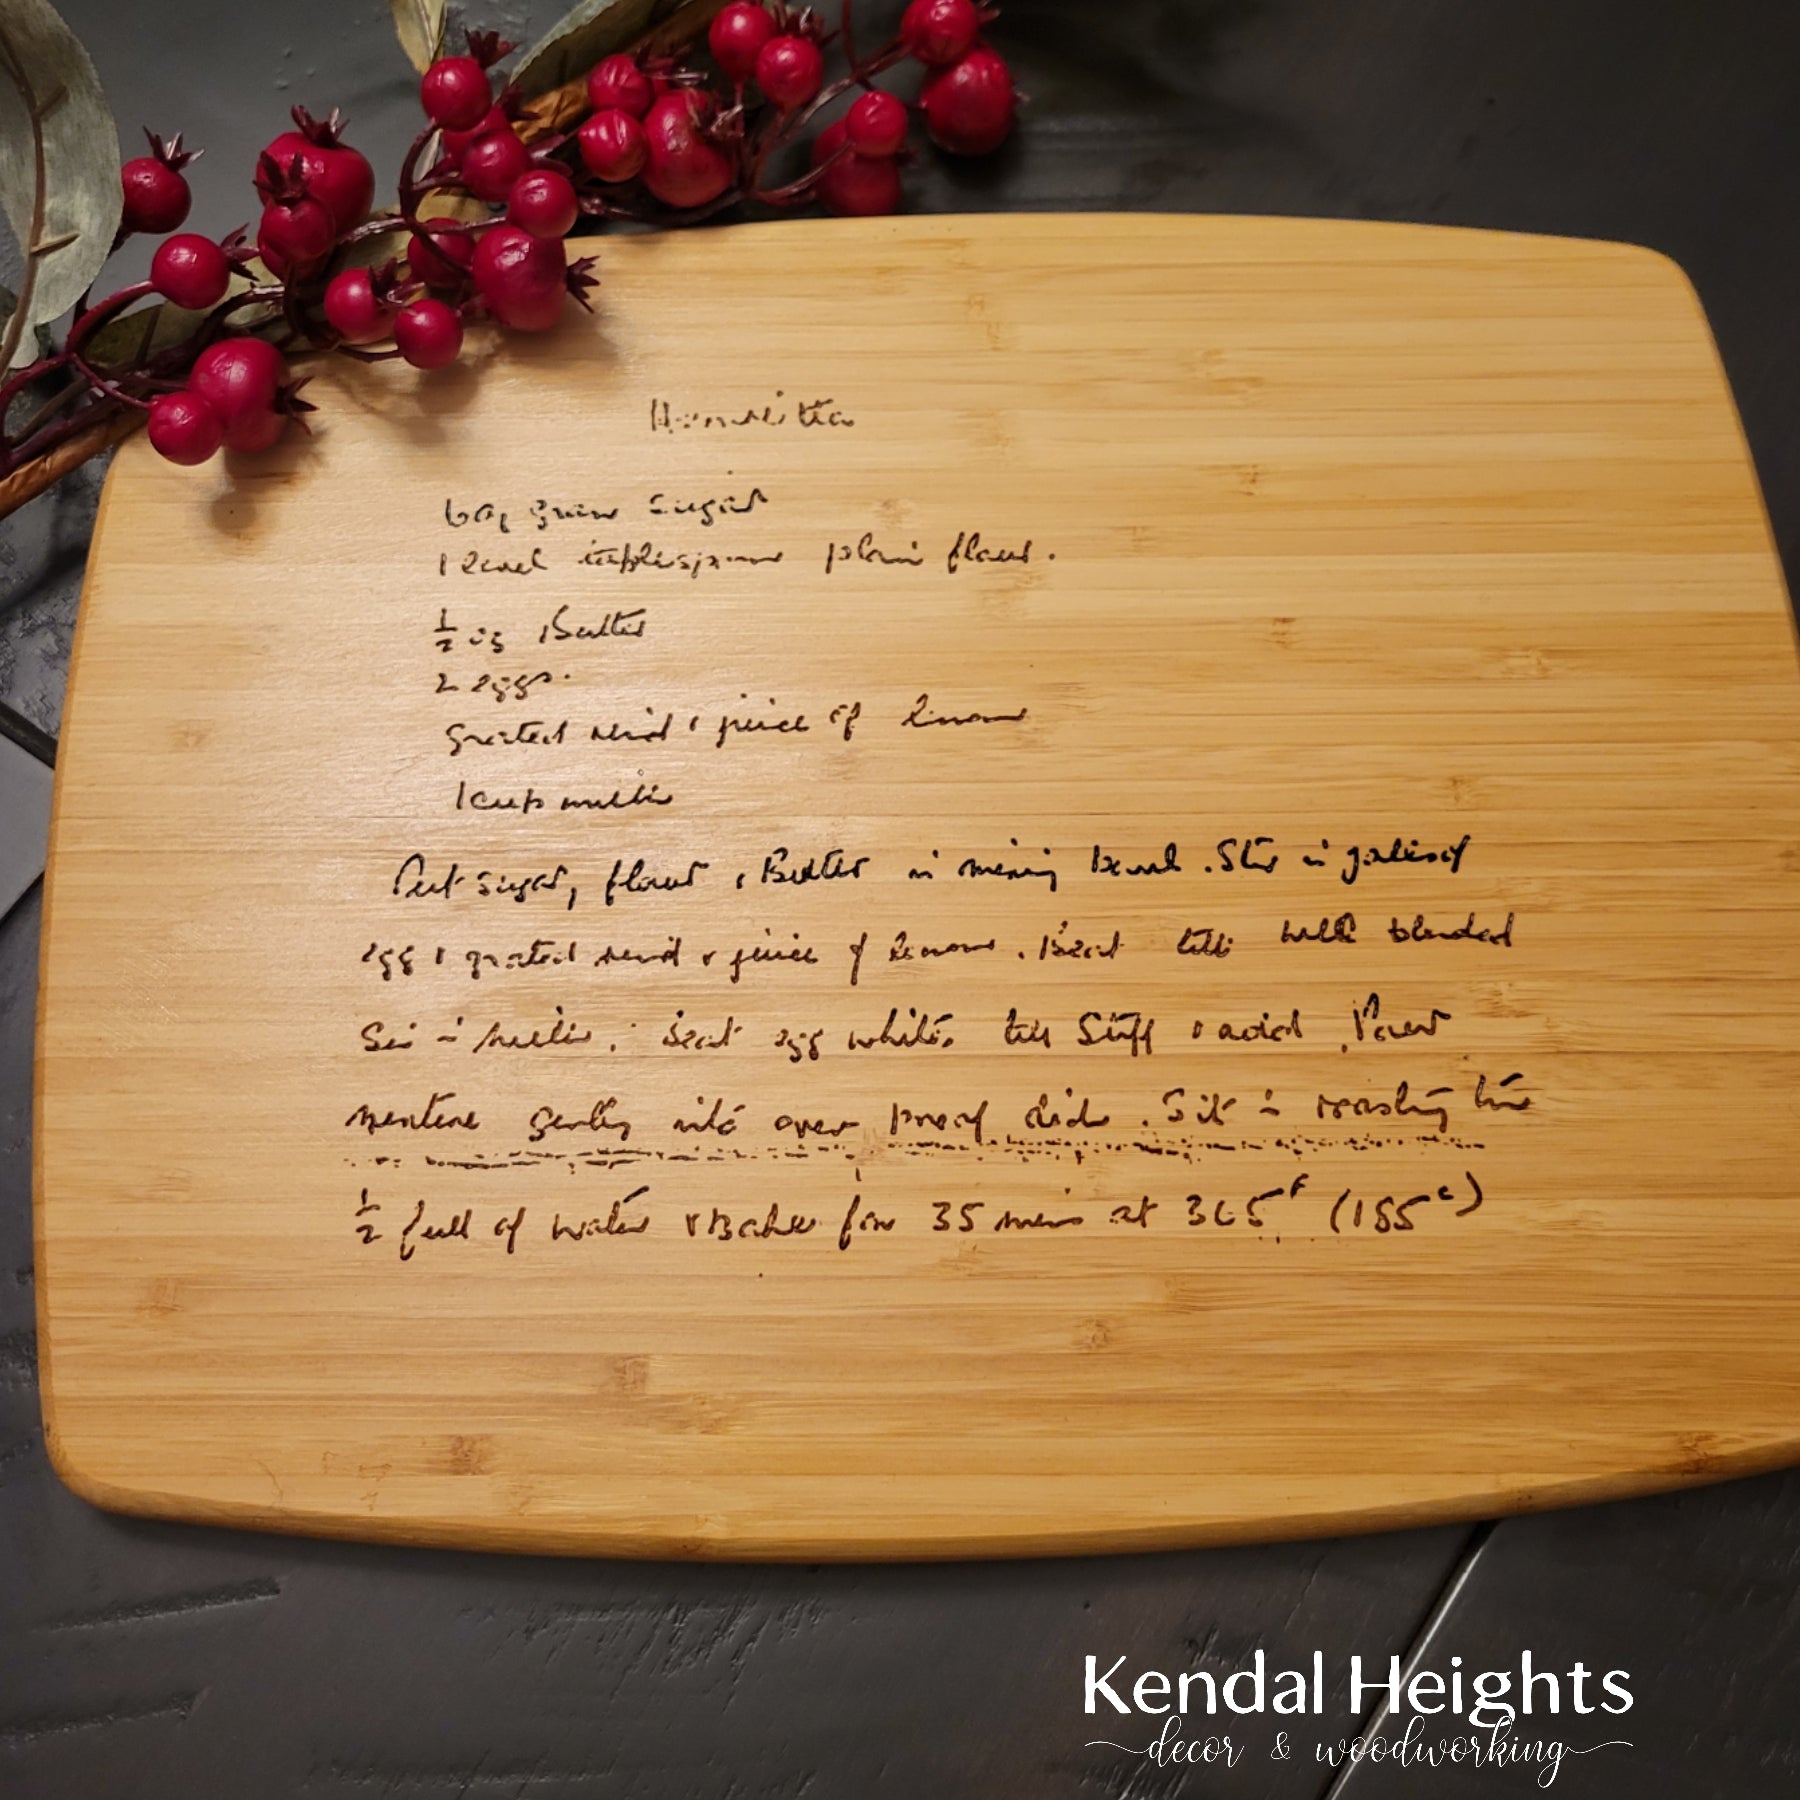 sugar
1 level tablespoon plain flour.
1/2 oz Butter
2 eggs.
grated rind & juice of lemon
1 cup milk
Put sugar, flour & Butter in mixing bowl. Stir in yolks of
egg & grated rind & juice of lemon. Beat till well blended
in milk. Beat egg whites till Stiff & add. Pour
mixture gently into oven proof dish. Sit in roasting tin
1/2 full of water & Bake for 35 mins at 365°F (185°C)
Kendal Heights
decor & woodworking